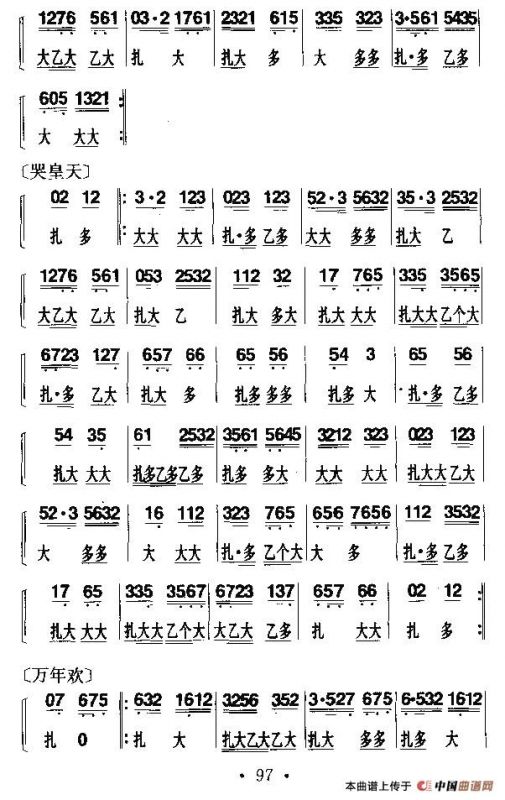 1276 561 | 03·2 1761 | 2321 615 | 335 323 | 3·561 5435
大乙大 乙大 | 扎 大 | 扎大 多 | 大 多多 | 扎·多 乙多
605 1321 :
大 大大 :
〔哭皇天〕
02 12 : 3·2 123 | 023 123 | 52·3 5632 | 35·3 2532
扎 多 : 大大 大大 | 扎·多 乙多 | 大大 多多 | 扎大 乙
1276 561 | 053 2532 | 112 32 | 17 765 | 335 3565
大乙大 乙大 | 扎大 乙 | 扎大 多大 | 扎大 大大 | 扎大大 乙个大
6723 127 | 657 66 | 65 56 | 54 3 | 65 56
扎·多 乙大 | 扎大 多 | 扎多 多多 | 扎多 大 | 扎·多 乙多
54 35 | 61 2532 | 3561 5645 | 3212 323 | 023 123
扎大 大大 | 扎多乙多乙多 | 扎多 多大 | 大大 大大 | 扎大大 乙大
52·3 5632 | 16 112 | 323 765 | 656 7656 | 112 3532
大 多多 | 大 大大 | 扎·多 乙个大 | 大 多 | 扎·多 乙多
17 65 | 335 3567 | 6723 137 | 657 66 | 02 12 :
扎大 大大 | 扎大大 乙个大 | 大乙大 乙多 | 扎 大大 | 扎 多 :
〔万年欢〕
07 675 : 632 1612 | 3256 352 | 3·527 675 | 6·532 1612
扎 0 : 扎 大 | 扎大乙大乙大 | 扎大 多多 | 扎多 大
· 97 ·
本曲谱上传于 中国曲谱网